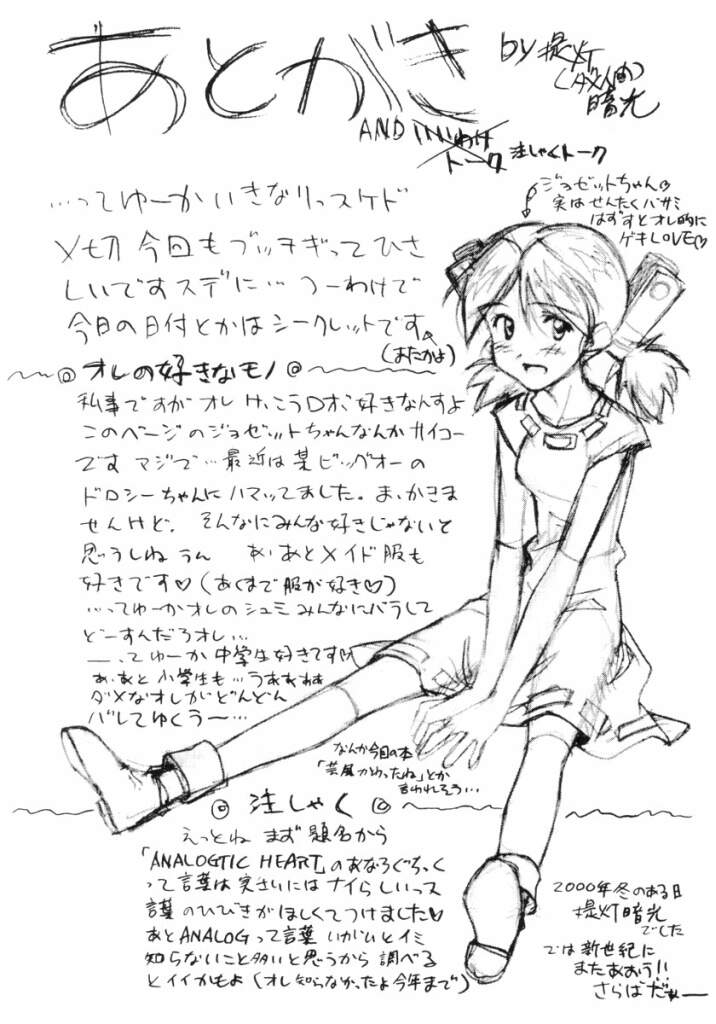 あとがき
by 提灯
(ダメ人間)
暗光
AND いいわけ
トーク 注しゃくトーク
ジョゼットちゃん♡
実はせんたくバサミ
はずすとオレ的に
ゲキLOVE♡
…ってゆーか いきなりっスケド
〆切 今回もブッチギってひさ
しいです スデに… つーわけで
今日の日付とかはシークレットです
(またかよ)
◎ オレの好きなモノ ◎
私事ですが オレ けっこうロボ好きなんすよ
このページのジョゼットちゃんなんか サイコー
です マジで… 最近は某ビッグオーの
ドロシーちゃんにハマッてました。 ま、かきま
せんけど。 そんなにみんな好きじゃないと
思うしね うん あ、あとメイド服も
好きです♡(あくまで服が好き♡)
…ってゆーかオレのシュミみんなにバラして
どーすんだろオレ…
――ってゆーか 中学生好きです♡
あ、あと小学生も…うあああ
ダメなオレがどんどん
バレてゆくう～…
なんか今回の本
「芸風かわったね」とか
言われそう…
◎ 注しゃく ◎
えっとね まず 題名から
「ANALOGTIC HEART」のあなろぐちっく
って言葉は実さいにはナイらしいっス
言葉のひびきがほしくてつけました♡
あとANALOGって言葉 いがいとイミ
知らないこと多いと思うから 調べる
とイイかもよ(オレ知らなかったよ今年まで)
2000年冬のある日
提灯暗光
でした
では 新世紀に
またあおう!!
さらばだぁー